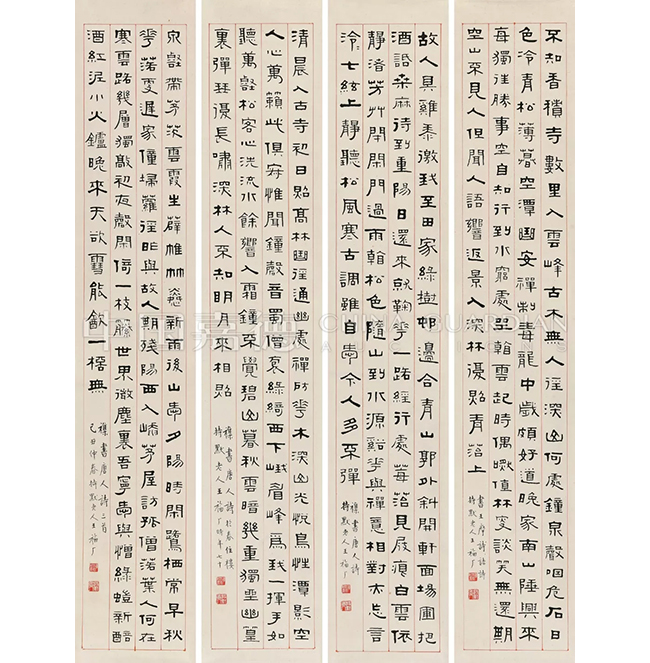 不知香積寺數里入雲峰古木無人徑深山何處鐘泉聲咽危石日
色冷青松薄暮空潭曲安禪制毒龍中歲頗好道晚家南山陲興來
每獨往勝事空自知行到水窮處坐看雲起時偶然值林叟談笑無還期
空山不見人但聞人語響返景入深林復照青苔上
書王摩詰諸詩
持默老人王福厂
故人具雞黍邀我至田家綠樹邨邊合青山郭外斜開軒面場圃把
酒話桑麻待到重陽日還來就鞠華一路經行處莓苔見屐痕白雲依
靜渚芳艸閉閑門過雨看松色隨山到水源谿華與禪意相對亦忘言
泠〻七絃上靜聽松風寒古調雖自愛今人多不彈
襍書唐人詩
持默老人王福厂
清晨入古寺初日照高林曲徑通幽處禪房華木深山光悅鳥性潭影空
人心萬籟此俱寂惟聞鐘磬音蜀僧抱綠綺西下峨眉峰為我一揮手如
聽萬壑松客心洗流水餘響入霜鐘不覺碧山暮秋雲暗幾重獨坐幽篁
裏彈琴復長嘯深林人不知明月來相照
襍書唐人詩於春住樓
持默老人王福厂時年七十
泉壑帶茅茨雲霞生薜帷竹憐新雨後山愛夕陽時閑鷺栖常早秋
華落更遲家僮掃蘿徑昨與故人期殘陽西入崦茅屋訪孤僧落葉人何在
寒雲路幾層獨敲初夜磬閑倚一枝藤世界微塵裏吾寧愛與憎綠螘新醅
酒紅泥小火鑪晚來天欲雪能飲一桮無
襍書唐人詩三首
己丑仲春持默老人王福厂
中国嘉德 CHINA GUARDIAN